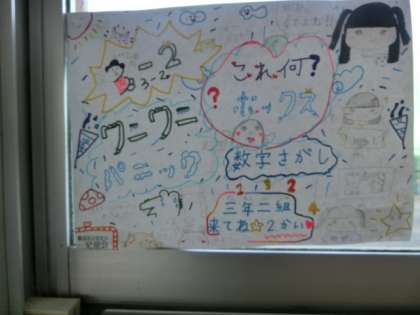 3-2
これ何?
ボックス
?
ワニワニ
パニック
数字さがし
2 3 2
三年二組
4
来てね☆2かい